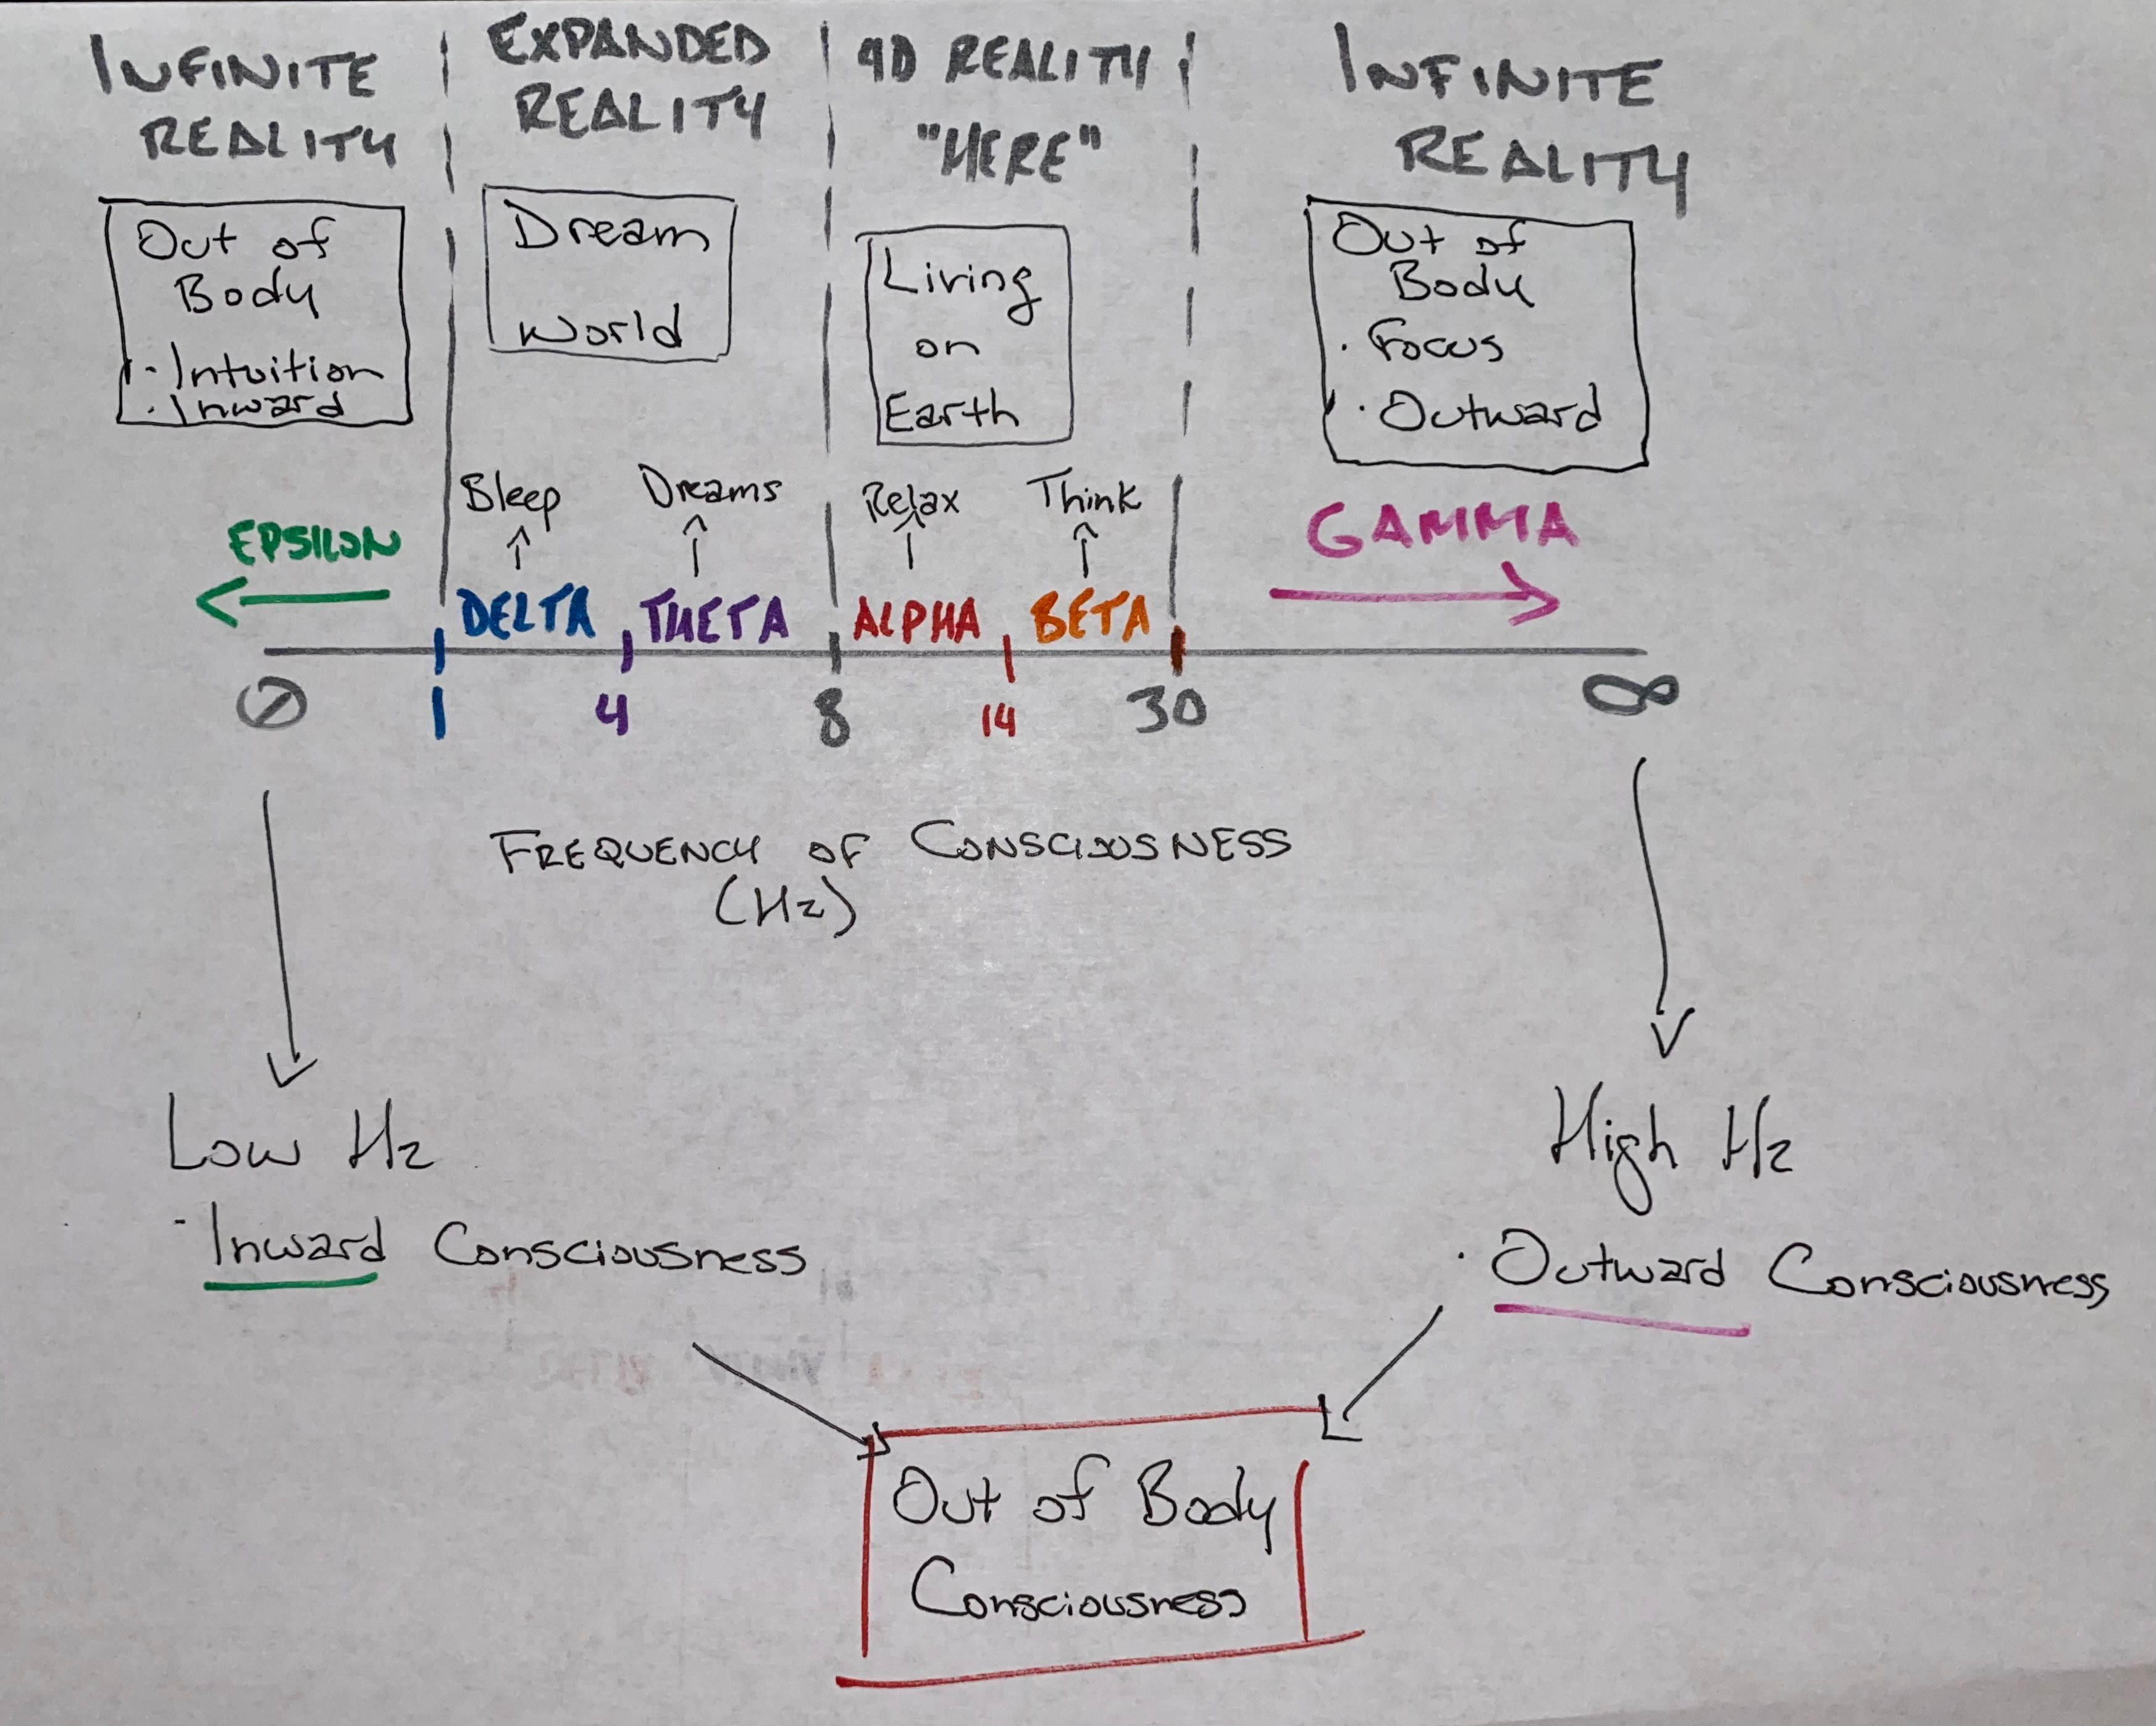 INFINITE
REALITY
EXPANDED
REALITY
4D REALITY
"HERE"
INFINITE
REALITY
Out of
Body
· Intuition
· Inward
Dream
World
Living
on
Earth
Out of
Body
· Focus
· Outward
Sleep
Dreams
Relax
Think
EPSILON
DELTA
THETA
ALPHA
BETA
GAMMA
0 1 4 8 14 30 ∞
FREQUENCY OF CONSCIOUSNESS
(Hz)
Low Hz
- Inward Consciousness
High Hz
· Outward Consciousness
Out of Body
Consciousness